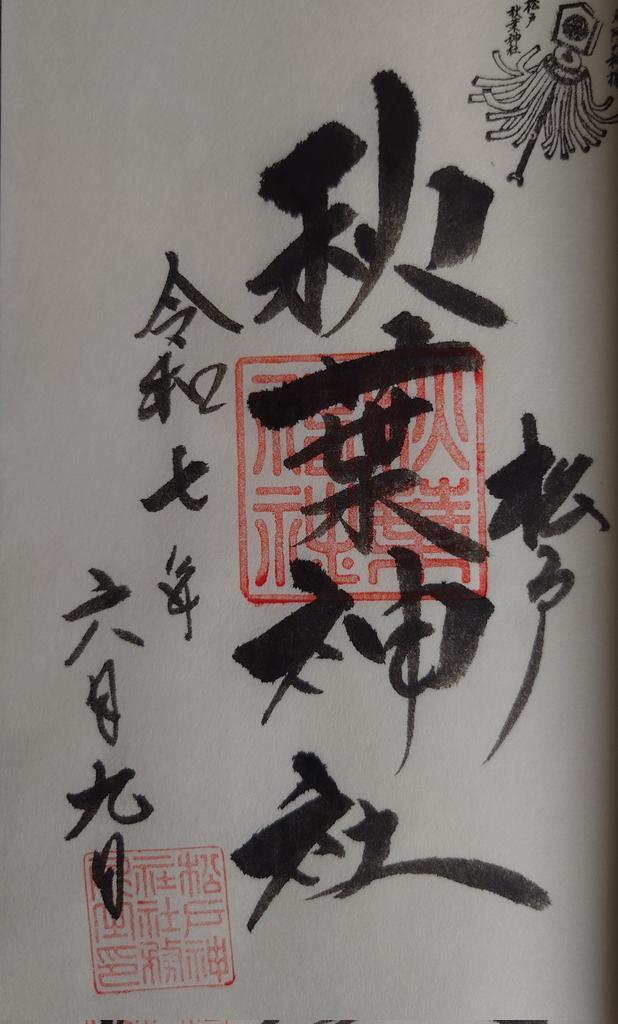 松戸
秋葉神社
松戸
秋葉神社
秋葉
神社
令和七年
六月九日
松戸神
社社務